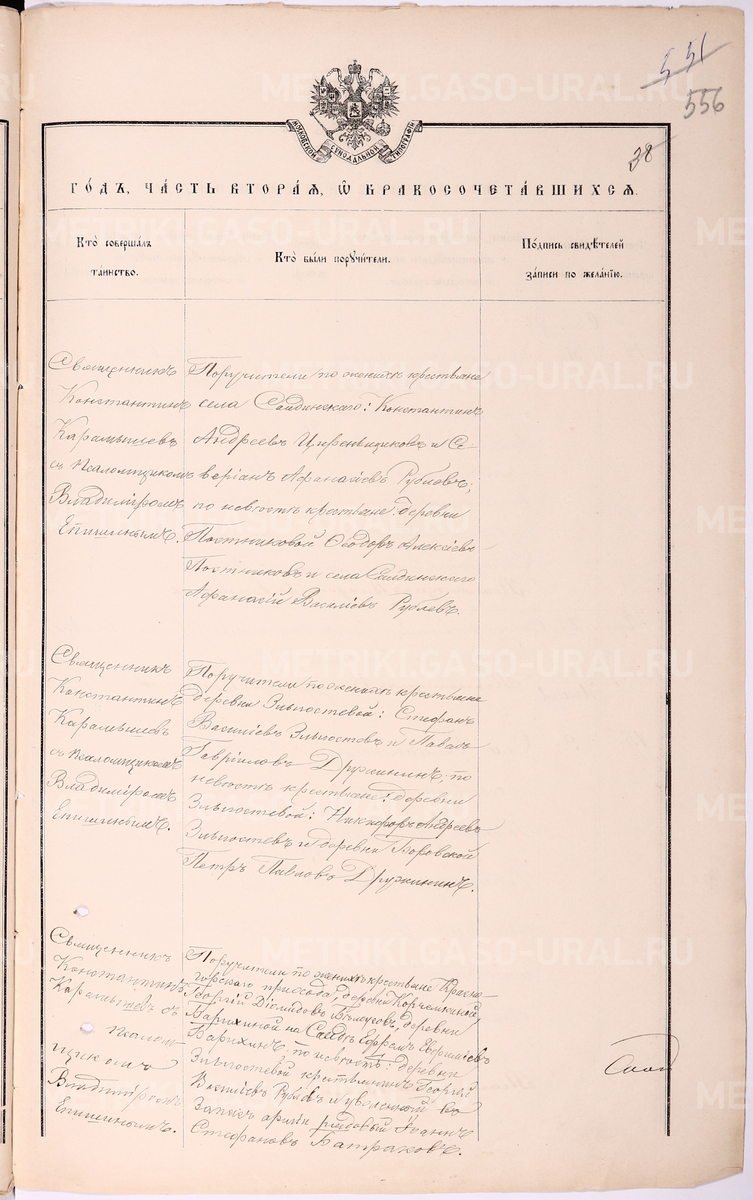 551
556
38
МОСКОВСКОЙ СѴНОДАЛЬНОЙ ТИПОГРАФІИ
ГО́ДЪ, ЧА́СТЬ ВТОРА́Я, Ѡ҆ БРАКОСОЧЕТА́ВШИХСЯ.
Кто̀ соверша́лъ
та́инство.
Кто̀ бы́ли порꙋчи́тели.
По́дпись свидѣ́телей
за́писи по жела́нїю.
Священникъ
Константинъ
Карамышевъ
съ Псаломщикомъ
Владиміромъ
Епишинымъ.
Поручители по женихѣ крестьяне
села Саидинскаго: Константинъ
Андреевъ и Се-
веріанъ Афанасіевъ Рублевъ;
по невѣстѣ крестьяне: деревни
Постниковой Ѳеодоръ Алексіевъ
Постниковъ и села Саидинскаго
Афанасій Василіевъ Рублевъ.
Священникъ
Константинъ
Карамышевъ
съ Псаломщикомъ
Владиміромъ
Епишинымъ.
Поручители по женихѣ крестьяне
деревни Зыгостевой: Стефанъ
Василіевъ Зыгостевъ и Павелъ
Гавріиловъ Дружининъ; по
невѣстѣ крестьяне: деревни
Зыгостевой: Никифоръ Андреевъ
Зыгостевъ и деревни Боровской
Петръ Павловъ Дружининъ.
Священникъ
Константинъ
Карамышевъ съ
Псалом
щикомъ
Владиміромъ
Епишинымъ.
Поручители по женихѣ крестьяне Красно-
горскаго прихода, деревни Корчемкиной
Георгій Діомидовъ деревни
Барихиной Ефремъ Евфиміевъ
Барихинъ по невѣстѣ: деревни
Зыгостевой крестьянинъ Георгій
Василіевъ Рублевъ и уволенный въ
Запасъ арміи рядовой Іоаннъ
Стефановъ Батраковъ.